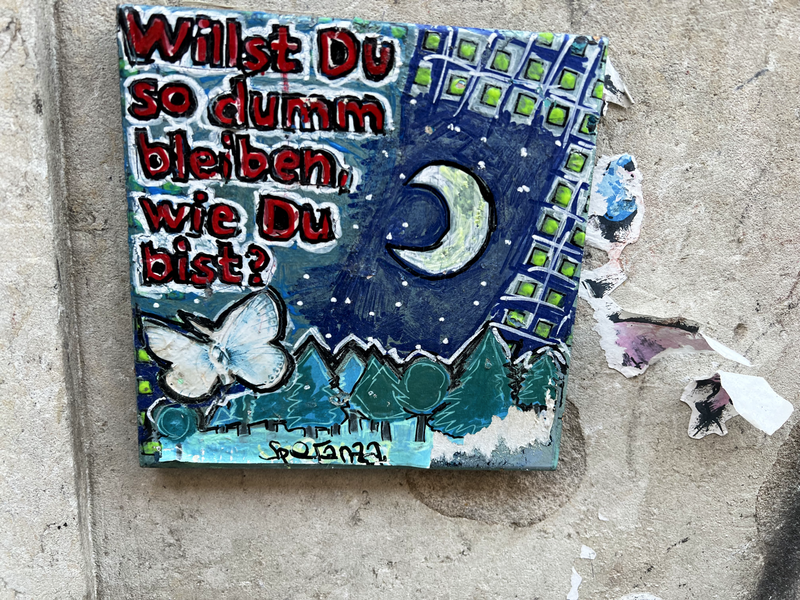 Willst Du
so dumm
bleiben,
wie Du
bist?
Speranza